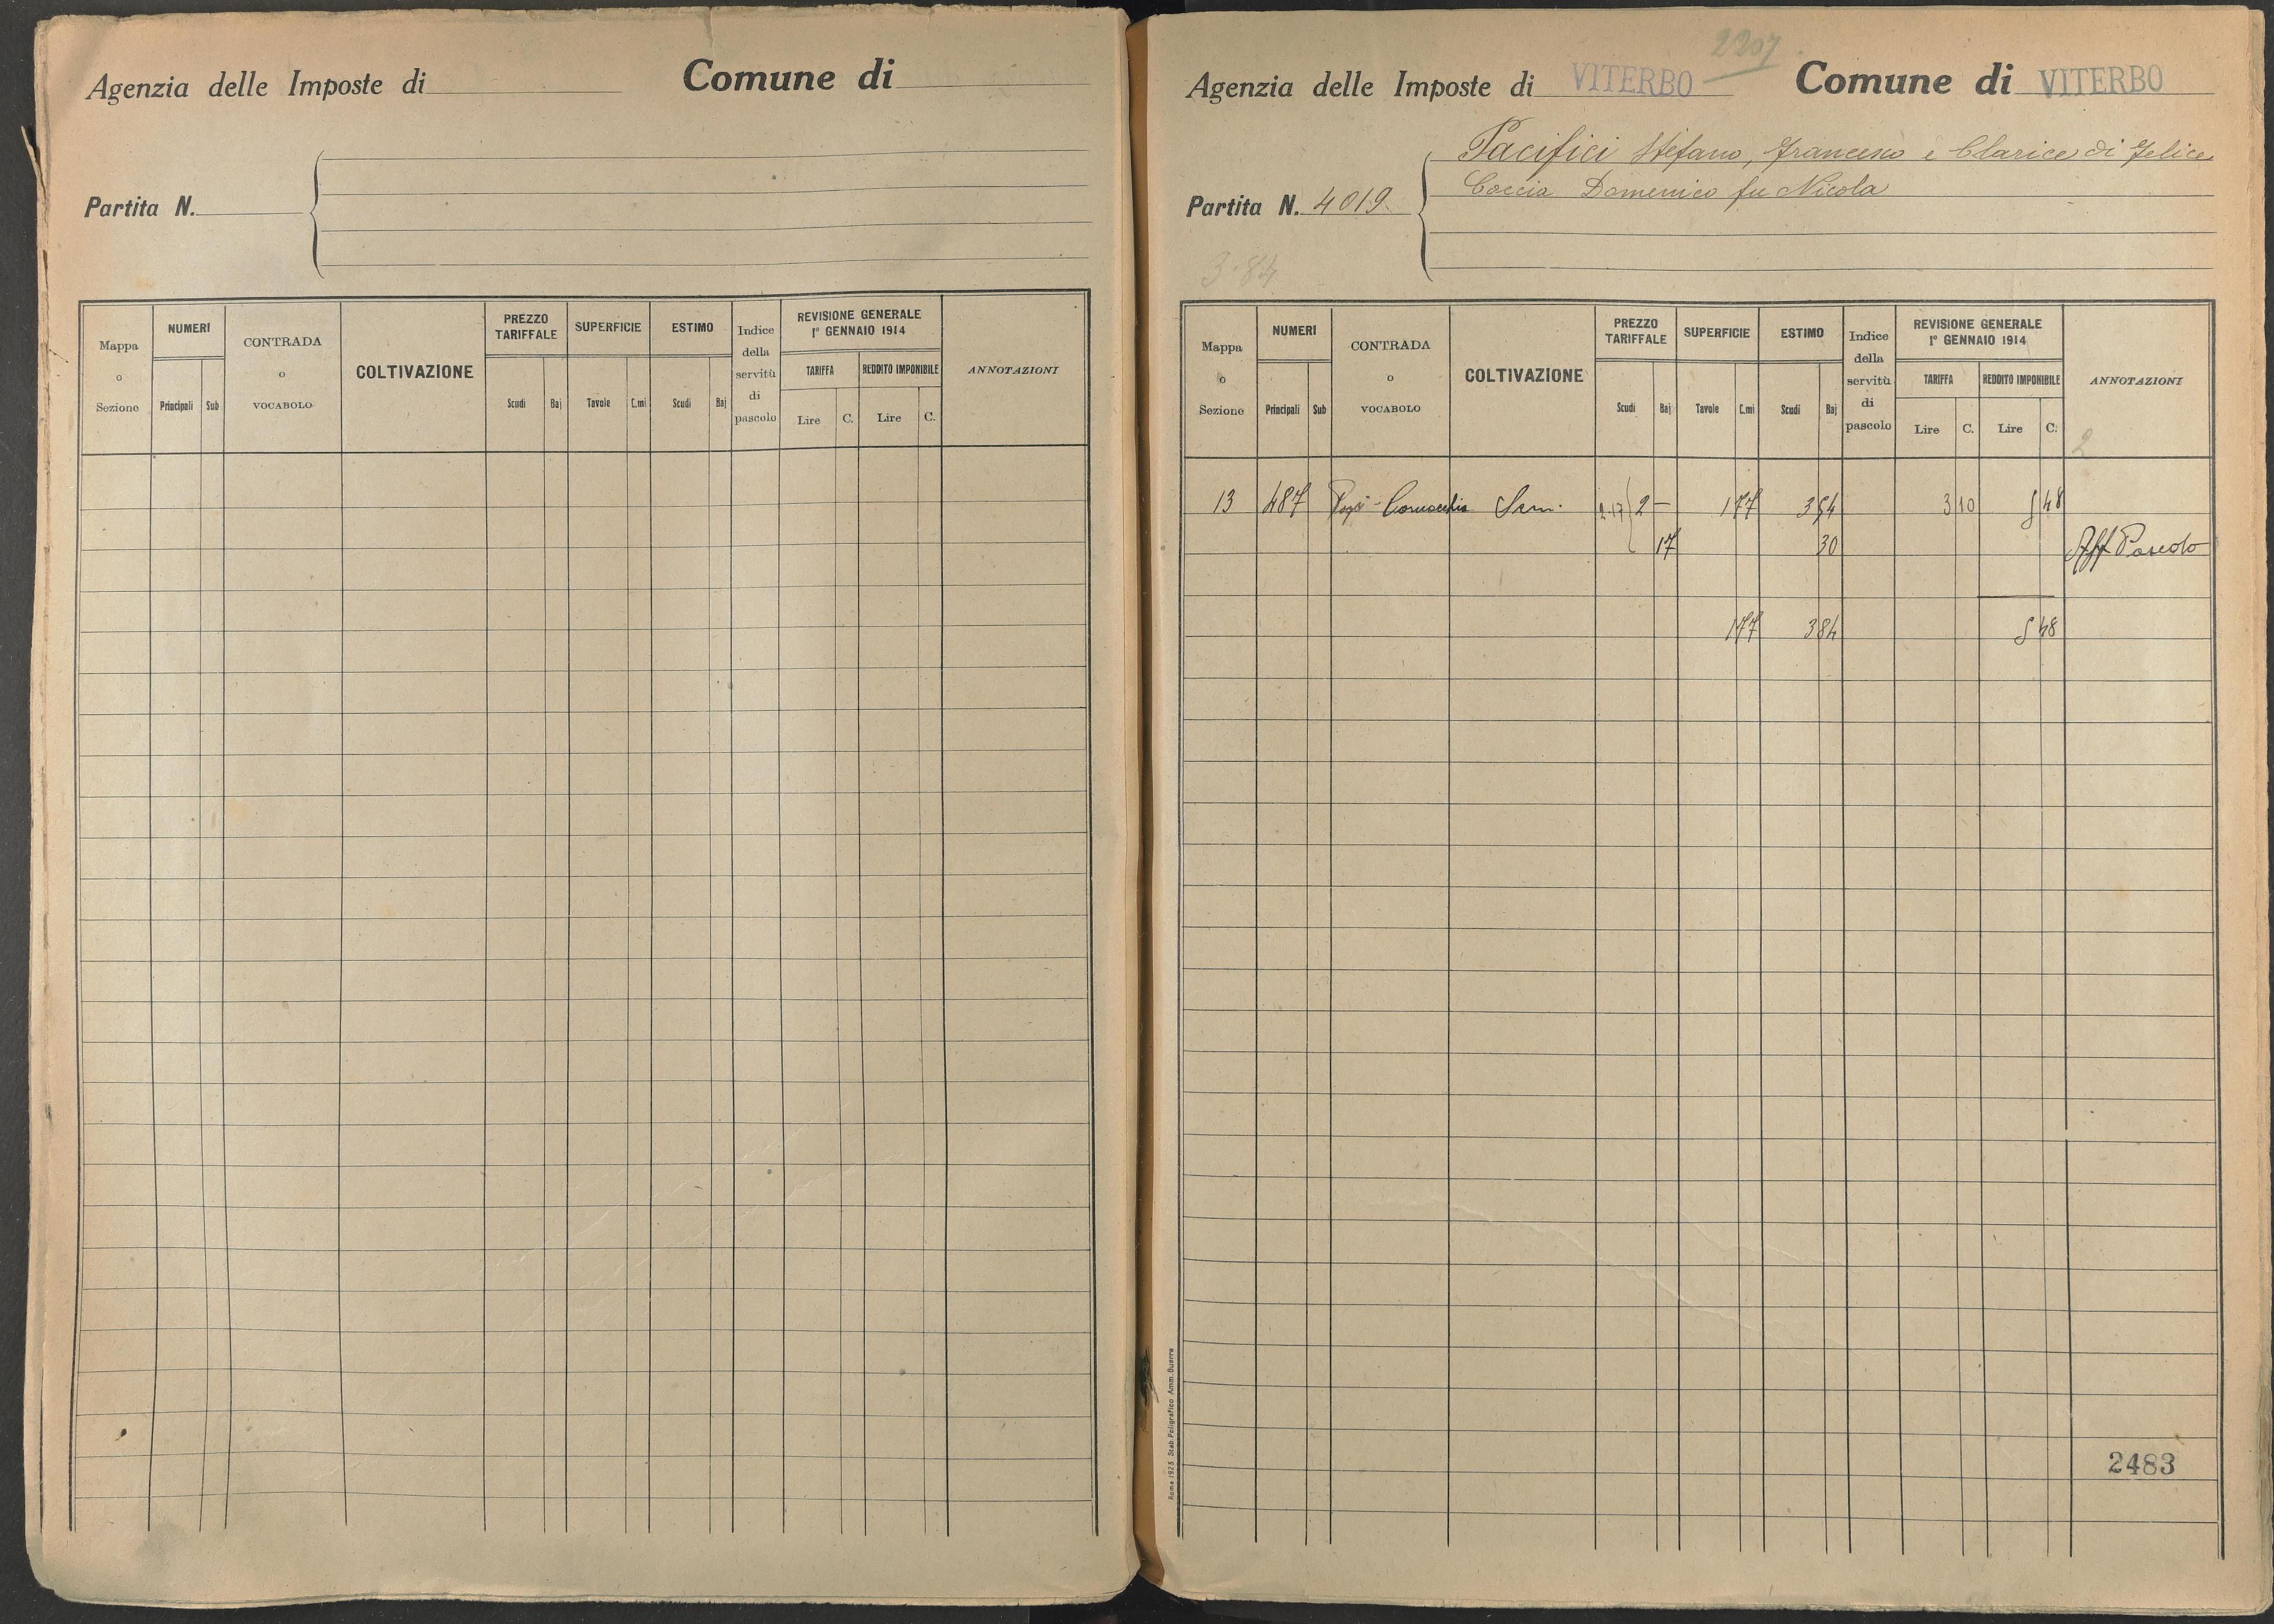 Agenzia delle Imposte di
Comune di
Partita N.
Mappa o Sezione
NUMERI
Principali Sub
CONTRADA o VOCABOLO
COLTIVAZIONE
PREZZO TARIFFALE
Scudi Baj
SUPERFICIE
Tavole C.mi
ESTIMO
Scudi Baj
Indice della servitù di pascolo
REVISIONE GENERALE
1° GENNAIO 1914
TARIFFA
Lire C.
REDDITO IMPONIBILE
Lire C.
ANNOTAZIONI
2207
Agenzia delle Imposte di VITERBO Comune di VITERBO
Pacifici Stefano, Francesco e Clarice di Felice
Coccia Domenico fu Nicola
Partita N. 4019
3.84
Mappa o Sezione
NUMERI
Principali Sub
CONTRADA o VOCABOLO
COLTIVAZIONE
PREZZO TARIFFALE
Scudi Baj
SUPERFICIE
Tavole C.mi
ESTIMO
Scudi Baj
Indice della servitù di pascolo
REVISIONE GENERALE
1° GENNAIO 1914
TARIFFA
Lire C.
REDDITO IMPONIBILE
Lire C.
ANNOTAZIONI
2
13 487 Sem. 2.17 2 — 1 77 3 54 3 10 5 48
17 30 Aff Pascolo
1 77 3 84 5 48
2483
Roma 1923 Stab. Poligrafico Amm. Guerra